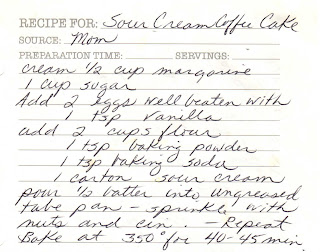 RECIPE FOR: Sour Cream Coffee Cake
SOURCE: Mom
PREPARATION TIME: SERVINGS:
cream 1/2 cup margarine
1 cup sugar
Add 2 eggs well beaten with
1 tsp vanilla
add 2 cups flour
1 tsp baking powder
1 tsp baking soda
1 carton sour cream
pour 1/2 batter into ungreased
tube pan - sprinkle with
nuts and cin. - Repeat
Bake at 350 for 40-45 min